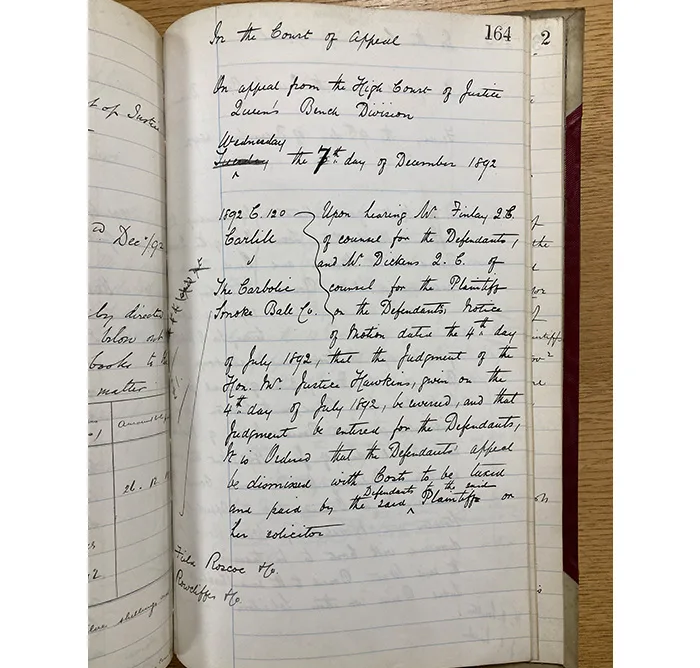 In the Court of Appeal
164
2
On appeal from the High Court of Justice
Queen's Bench Division
Wednesday
Tuesday the 7th day of December 1892
1892 C. 120 Upon hearing Mr. Finlay Q.C.
Carlill of counsel for the Defendants,
v and Mr. Dickens Q.C. of
The Carbolic counsel for the Plaintiff
Smoke Ball Co. on the Defendants Notice
of Motion dated the 4th day
of July 1892, that the Judgment of the
Hon. Mr. Justice Hawkins, given on the
4th day of July 1892, be reversed, and that
Judgment be entered for the Defendants,
It is Ordered that the Defendants' appeal
be dismissed with Costs to be taxed
and paid by the said Defendants to the said Plaintiff or
her solicitor
Field Roscoe & Co.
Rowcliffes & Co.
of Justice
Dec. /92
by direction
below
books to
matter
the